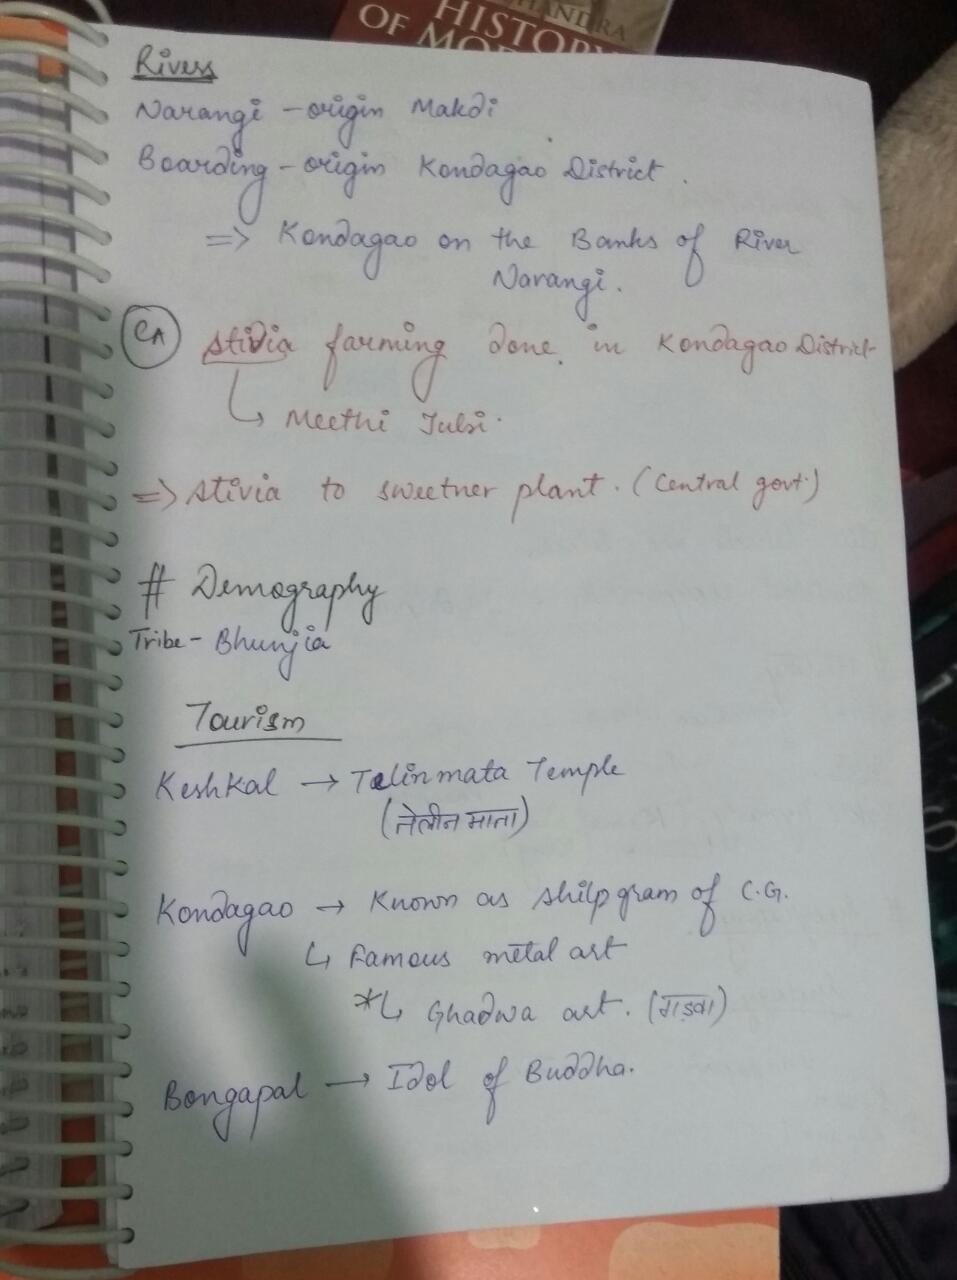 HANDRA
HISTORY
OF MOD
Rivers
Narangi - origin Makdi
Boarding - origin Kondagao District.
=> Kondagao on the Banks of River
Narangi.
CA
stivia farming done in Kondagao District
↳ Meethi Tulsi.
=> stivia to sweetner plant. (Central govt.)
# Demography
Tribe - Bhunjia
Tourism
Keshkal → Telinmata Temple
(तेलीन माता)
Kondagao → Known as shilpgram of C.G.
↳ Famous metal art
*↳ Ghadwa art. (गड़वा)
Bongapal → Idol of Buddha.